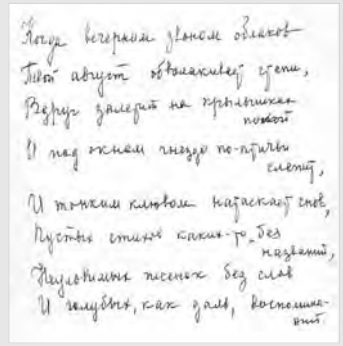 Когда вечерним звоном облаков
Твой август обволакивает степи,
Вдруг залетит на крылышках
покой
И под окном гнездо по-птичьи
слепит,
И тонким клювом натаскает снов,
Пустых стихов каких-то, без
названий,
Неуловимых песенок без слов
И голубых, как даль, воспомина-
ний.